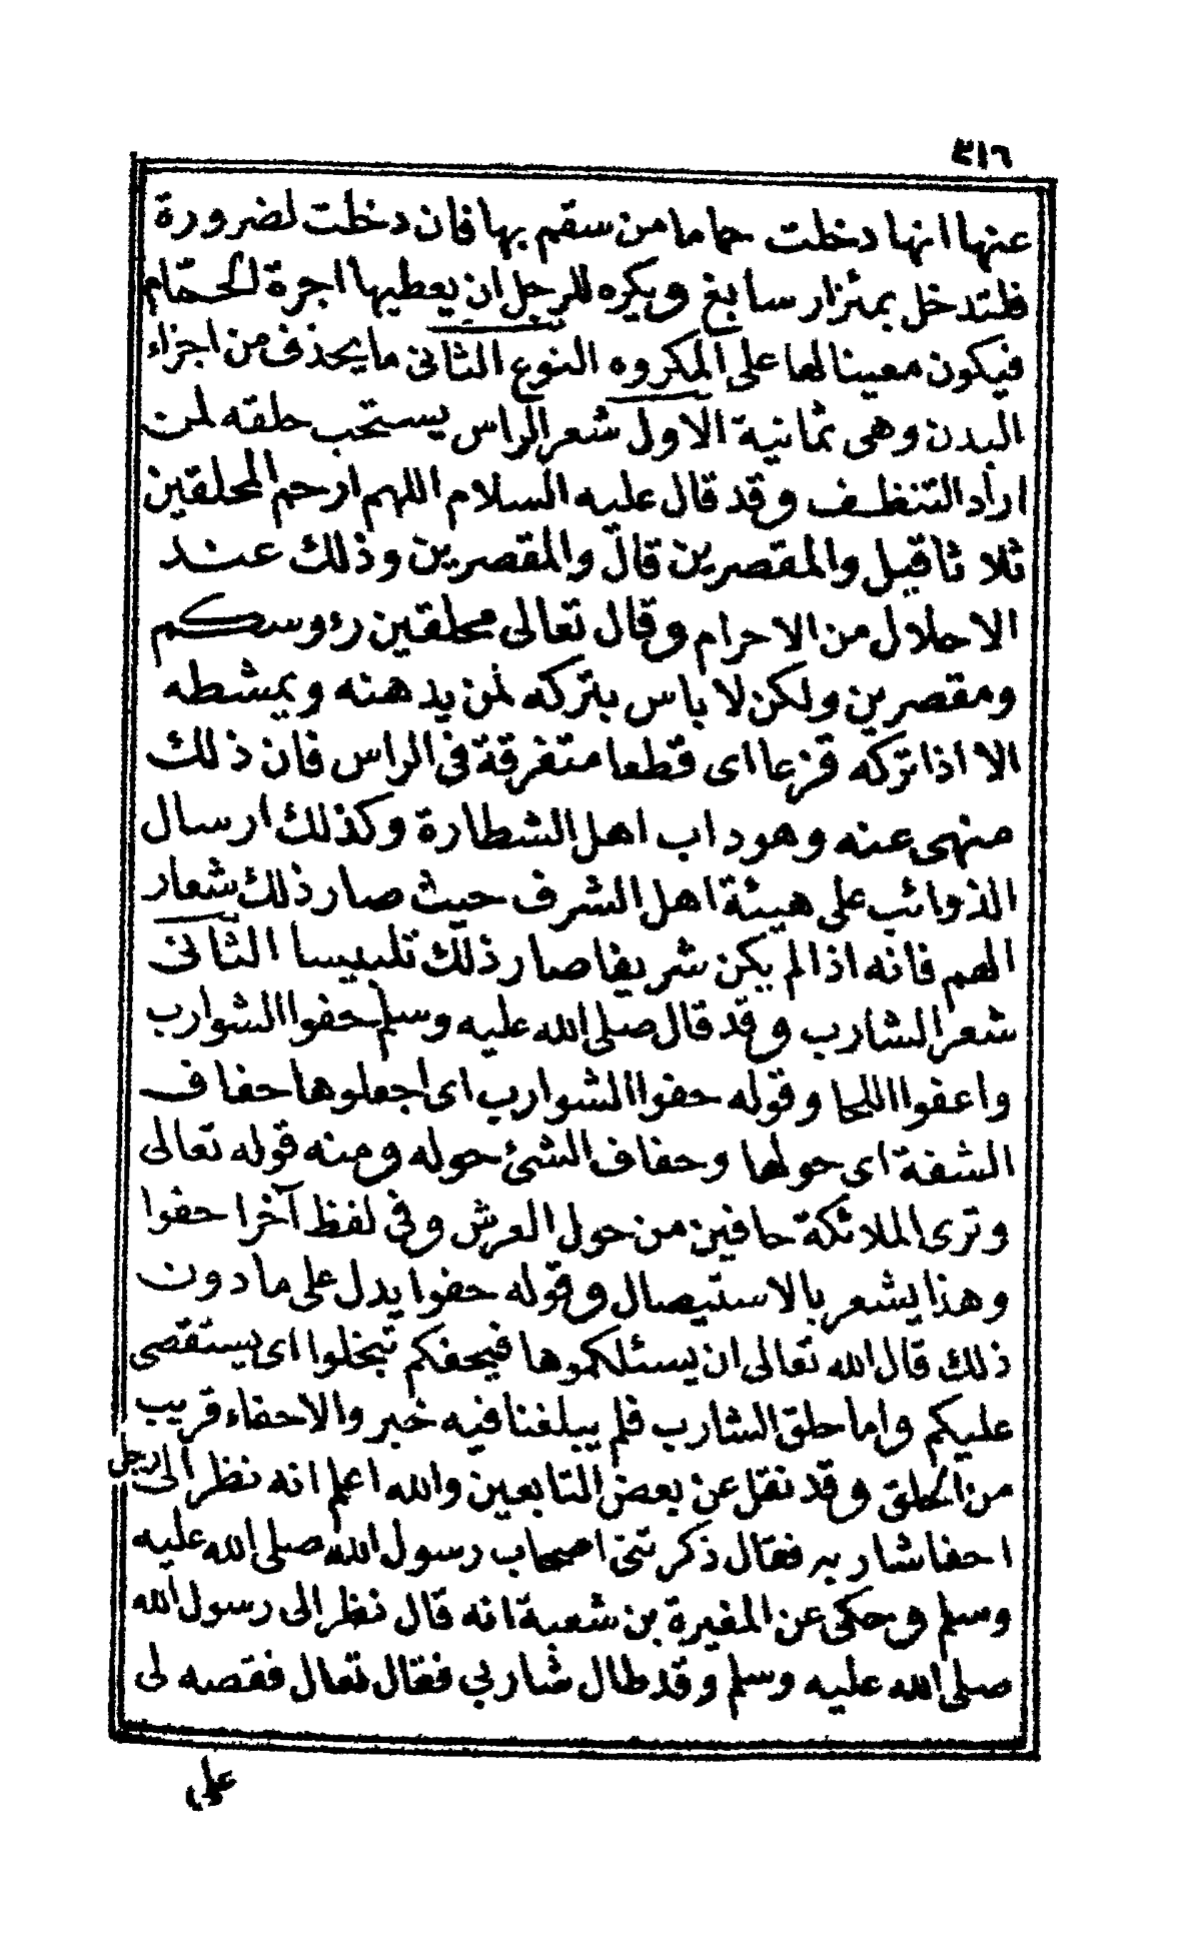 ٣١٦
عنها انها دخلت حماما من سقم بها فان دخلت لضرورة
فلتدخل بمئزار سابغ ويكره للرجل ان يعطيها اجرة الحمّام
فيكون معينا لها على المكروه النوع الثانى ما يحذف من اجزاء
البدن وهى ثمانية الاول شعر الراس يستحب حلقه لمن
اراد التنظف وقد قال عليه السلام اللهم ارحم المحلقين
ثلاثا قيل والمقصرين قال والمقصرين وذلك عند
الاحلال من الاحرام وقال تعالى محلقين رؤوسكم
ومقصرين ولكن لا باس بتركه لمن يدهنه ويمشطه
الا اذا تركه قزعا اى قطعا متفرقة فى الراس فان ذلك
منهى عنه وهو داب اهل الشطارة وكذلك ارسال
الذوائب على هيئة اهل الشرف حيث صار ذلك شعار
الهم فانه اذا لم يكن شريفا صار ذلك تلبيسا الثانى
شعر الشارب وقد قال صلى الله عليه وسلم حفوا الشوارب
واعفوا اللحا وقوله حفوا الشوارب اى اجعلوها حفاف
الشفة اى حولها وحفاف الشئ حوله ومنه قوله تعالى
وترى الملائكة حافين من حول العرش وفى لفظ آخر احفوا
وهذا يشعر بالاستيصال وقوله حفوا يدل على ما دون
ذلك قال الله تعالى ان يسئلكموها فيحفكم تبخلوا اى يستقصى
عليكم واما حلق الشارب فلم يبلغنا فيه خبر والاحفاء قريب
من الحلق وقد نقل عن بعض التابعين والله اعلم انه نظر الى رجل
احفا شاربه فقال ذكرتنى اصحاب رسول الله صلى الله عليه
وسلم وحكى عن المغيرة بن شعبة انه قال نظر الى رسول الله
صلى الله عليه وسلم وقد طال شاربي فقال تعال فقصه لى
على